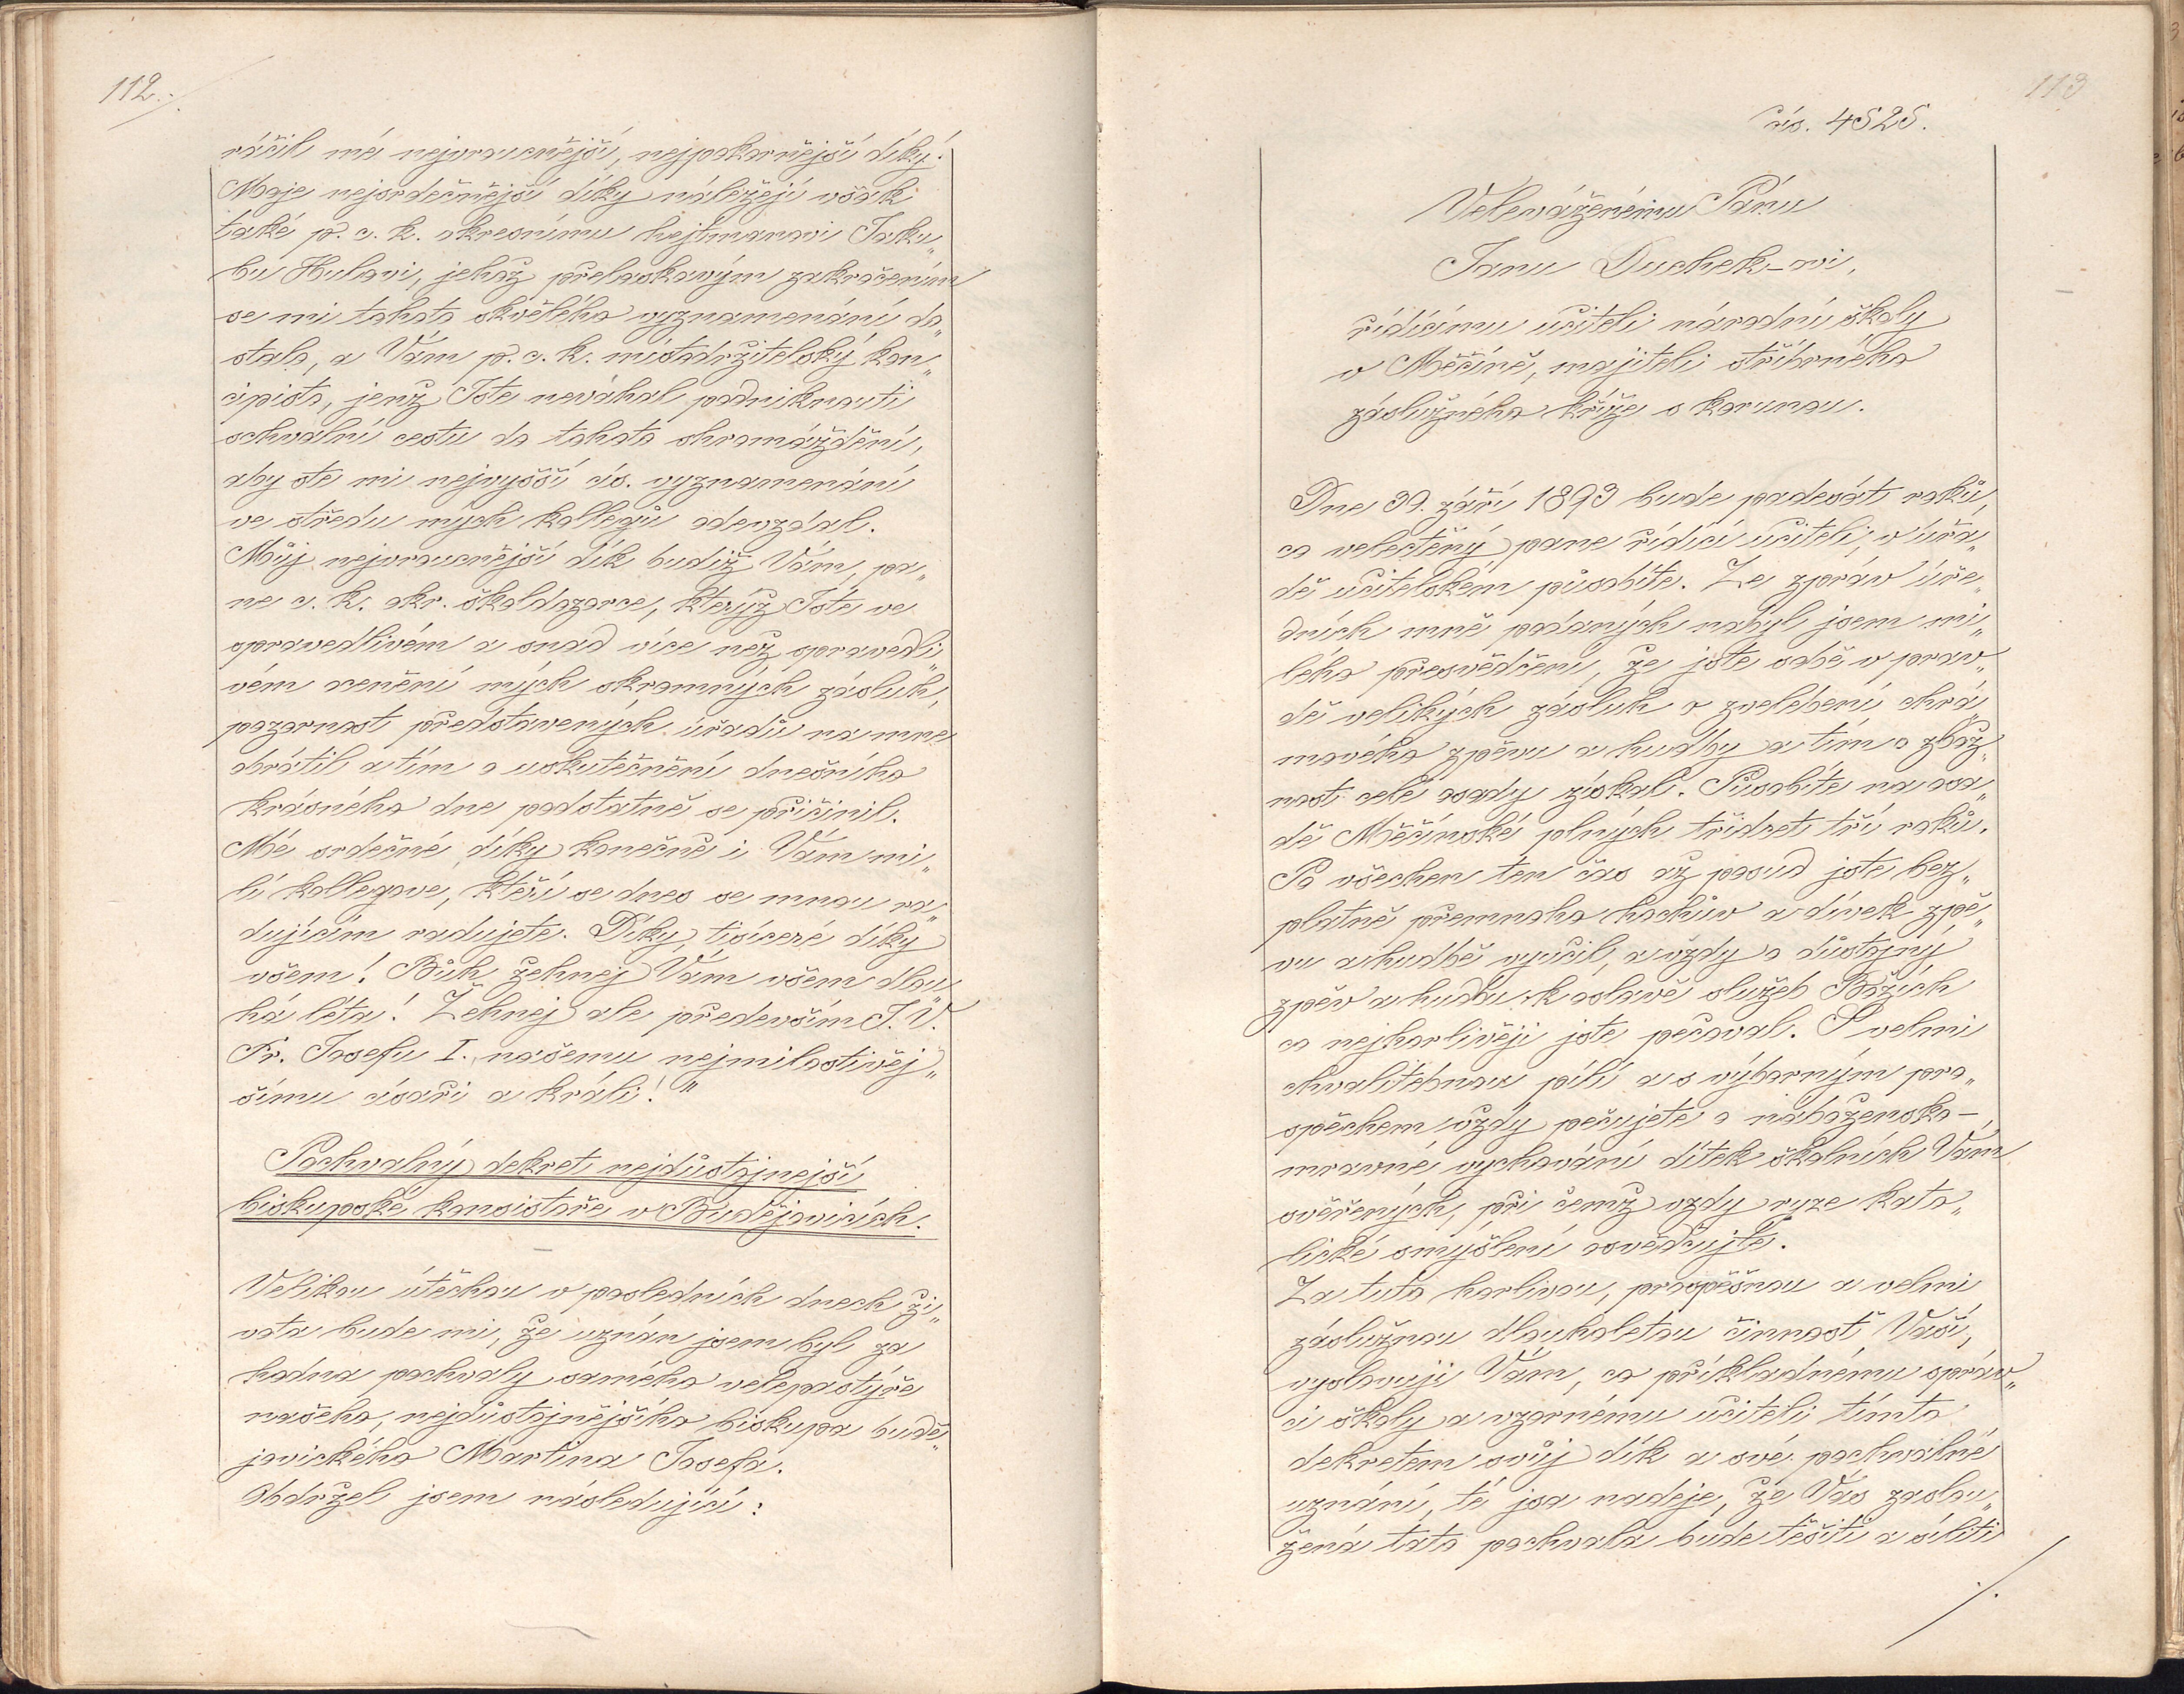 112.
ráčil mé nejvroucnější, nejpokornější díky!
Moje nejsrdečnější díky náležejí však
také p. c. k. okresnímu hejtmanovi Jaku„
bu Hulovi, jehož přelaskavým zakročením
se mi tohoto skvělého vyznamenání do„
stalo, a Vám p. c. k. místodržitelský kon„
cipisto, jenž Jste neváhal podniknouti
schvální cestu do tohoto shromáždění,
aby ste mi nejvyšší cís. vyznamenání
ve středu mých kollegů odevzdal.
Můj nejvroucnější dík budiž Vám, pa„
ne c. k. okr. školdozorce, kterýž Jste ve
spravedlivém a snad více než spravedli„
vém ocenění mých skromných zásluh,
pozornost představených úřadů na mne
obrátil a tím o uskutečnění dnešního
krásného dne podstatně se přičinil.
Mé srdečné díky konečně i Vám mi„
lí kollegové, kteří se dnes se mnou ra„
dujícím radujete. Díky, tisíceré díky
všem! Bůh žehnej Vám všem dlou„
há léta! Žehnej ale především J. V.
Fr. Josefu I. našemu nejmilostivěj„
šímu císaři a králi!"
Pochvalný dekret nejdůstojnejší
biskupské konsistoře v Budějovicích.
Velikou útěchou v posledních dnech ži„
vota bude mi, že uznán jsem byl za
hodna pochvaly samého velepastýře
našeho, nejdůstojnějšího biskupa budě„
jovického Martina Josefa.
Obdržel jsem následující:
113
Čís. 4525.
Velevaženému Pánu
Janu Duchek-ovi,
řídícímu učiteli národní školy
v Měčíně, majiteli stříbrného
záslužného kříže s korunou.
Dne 30. září 1893 bude padesát roků,
co velectěný pane řídící učiteli, v úřa„
dě učitelském působíte. Ze zpráv úře„
dních mně podaných nabyl jsem mi„
lého přesvědčení, že jste sobě v prav„
dě velikých zásluh o zvelebení chrá„
mového zpěvu a hudby a tím o zbož„
nost celé osady získal. Působíte na osa„
dě Měčínské plných třidcet tři roků.
Po všechen ten čas až posud jste bez„
platně přemnoho hochův a dívek zpě„
vu a hudbě vyučil, a vždy o důstojný
zpěv a hudbu k oslavě služeb Božích
co nejhorlivěji jste pečoval. S velmi
chvalitebnou pílí a s výborným pro„
spěchem vždy pečujete o nábožensko-
mravné vychování dítek školních Vám
svěřených, při čemž vždy ryze kato„
lické smýšlení osvědčujte.
Za tuto horlivou, prospěšnou a velmi
záslužnou dlouholetou činnost Vaši,
vyslovuji Vám, co příkladnému správ„
ci školy a vzornému učiteli tímto
dekretem svůj dík a své pochvalné
uznání, té jsa naděje, že Vás zaslou„
žená tato pochvala bude těšiti a síliti
./.